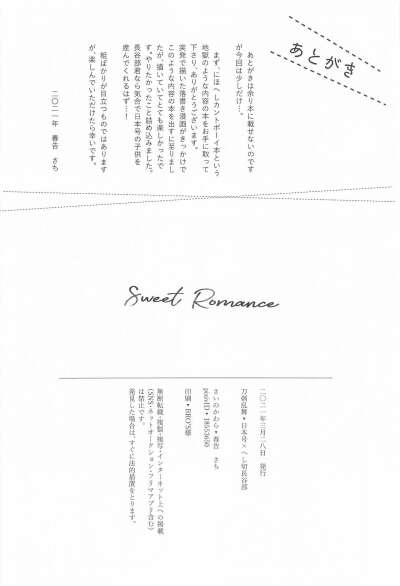 あとがき
あとがきは余り本に載せないのです
が今回は少しだけ…。
まず、にほへしカントボーイ本という
地獄のような内容の本をお手に取って
下さり、ありがとうございます。
突発で描いた落書き漫画がきっかけで
このような内容の本を出すに至りまし
たが、描いていてとても楽しかったで
す。やりたかったこと詰め込みました。
長谷部君なら気合で日本号の子供を
産んでくれるはず…！
粗ばかりが目立つものではあります
が、楽しんでいただけたら幸いです。
二〇二一年 春告 さち
Sweet Romance
二〇二一年三月二八日 発行
刀剣乱舞・日本号×へし切長谷部
さいのかわら・春告 さち
pixivID・18553650
印刷・BRO'S様
無断転載・複製・複写・インターネット上への掲載
(SNS・ネットオークション・フリマアプリ含む)
は禁止です。
発見した場合は、すぐに法的措置をとります。